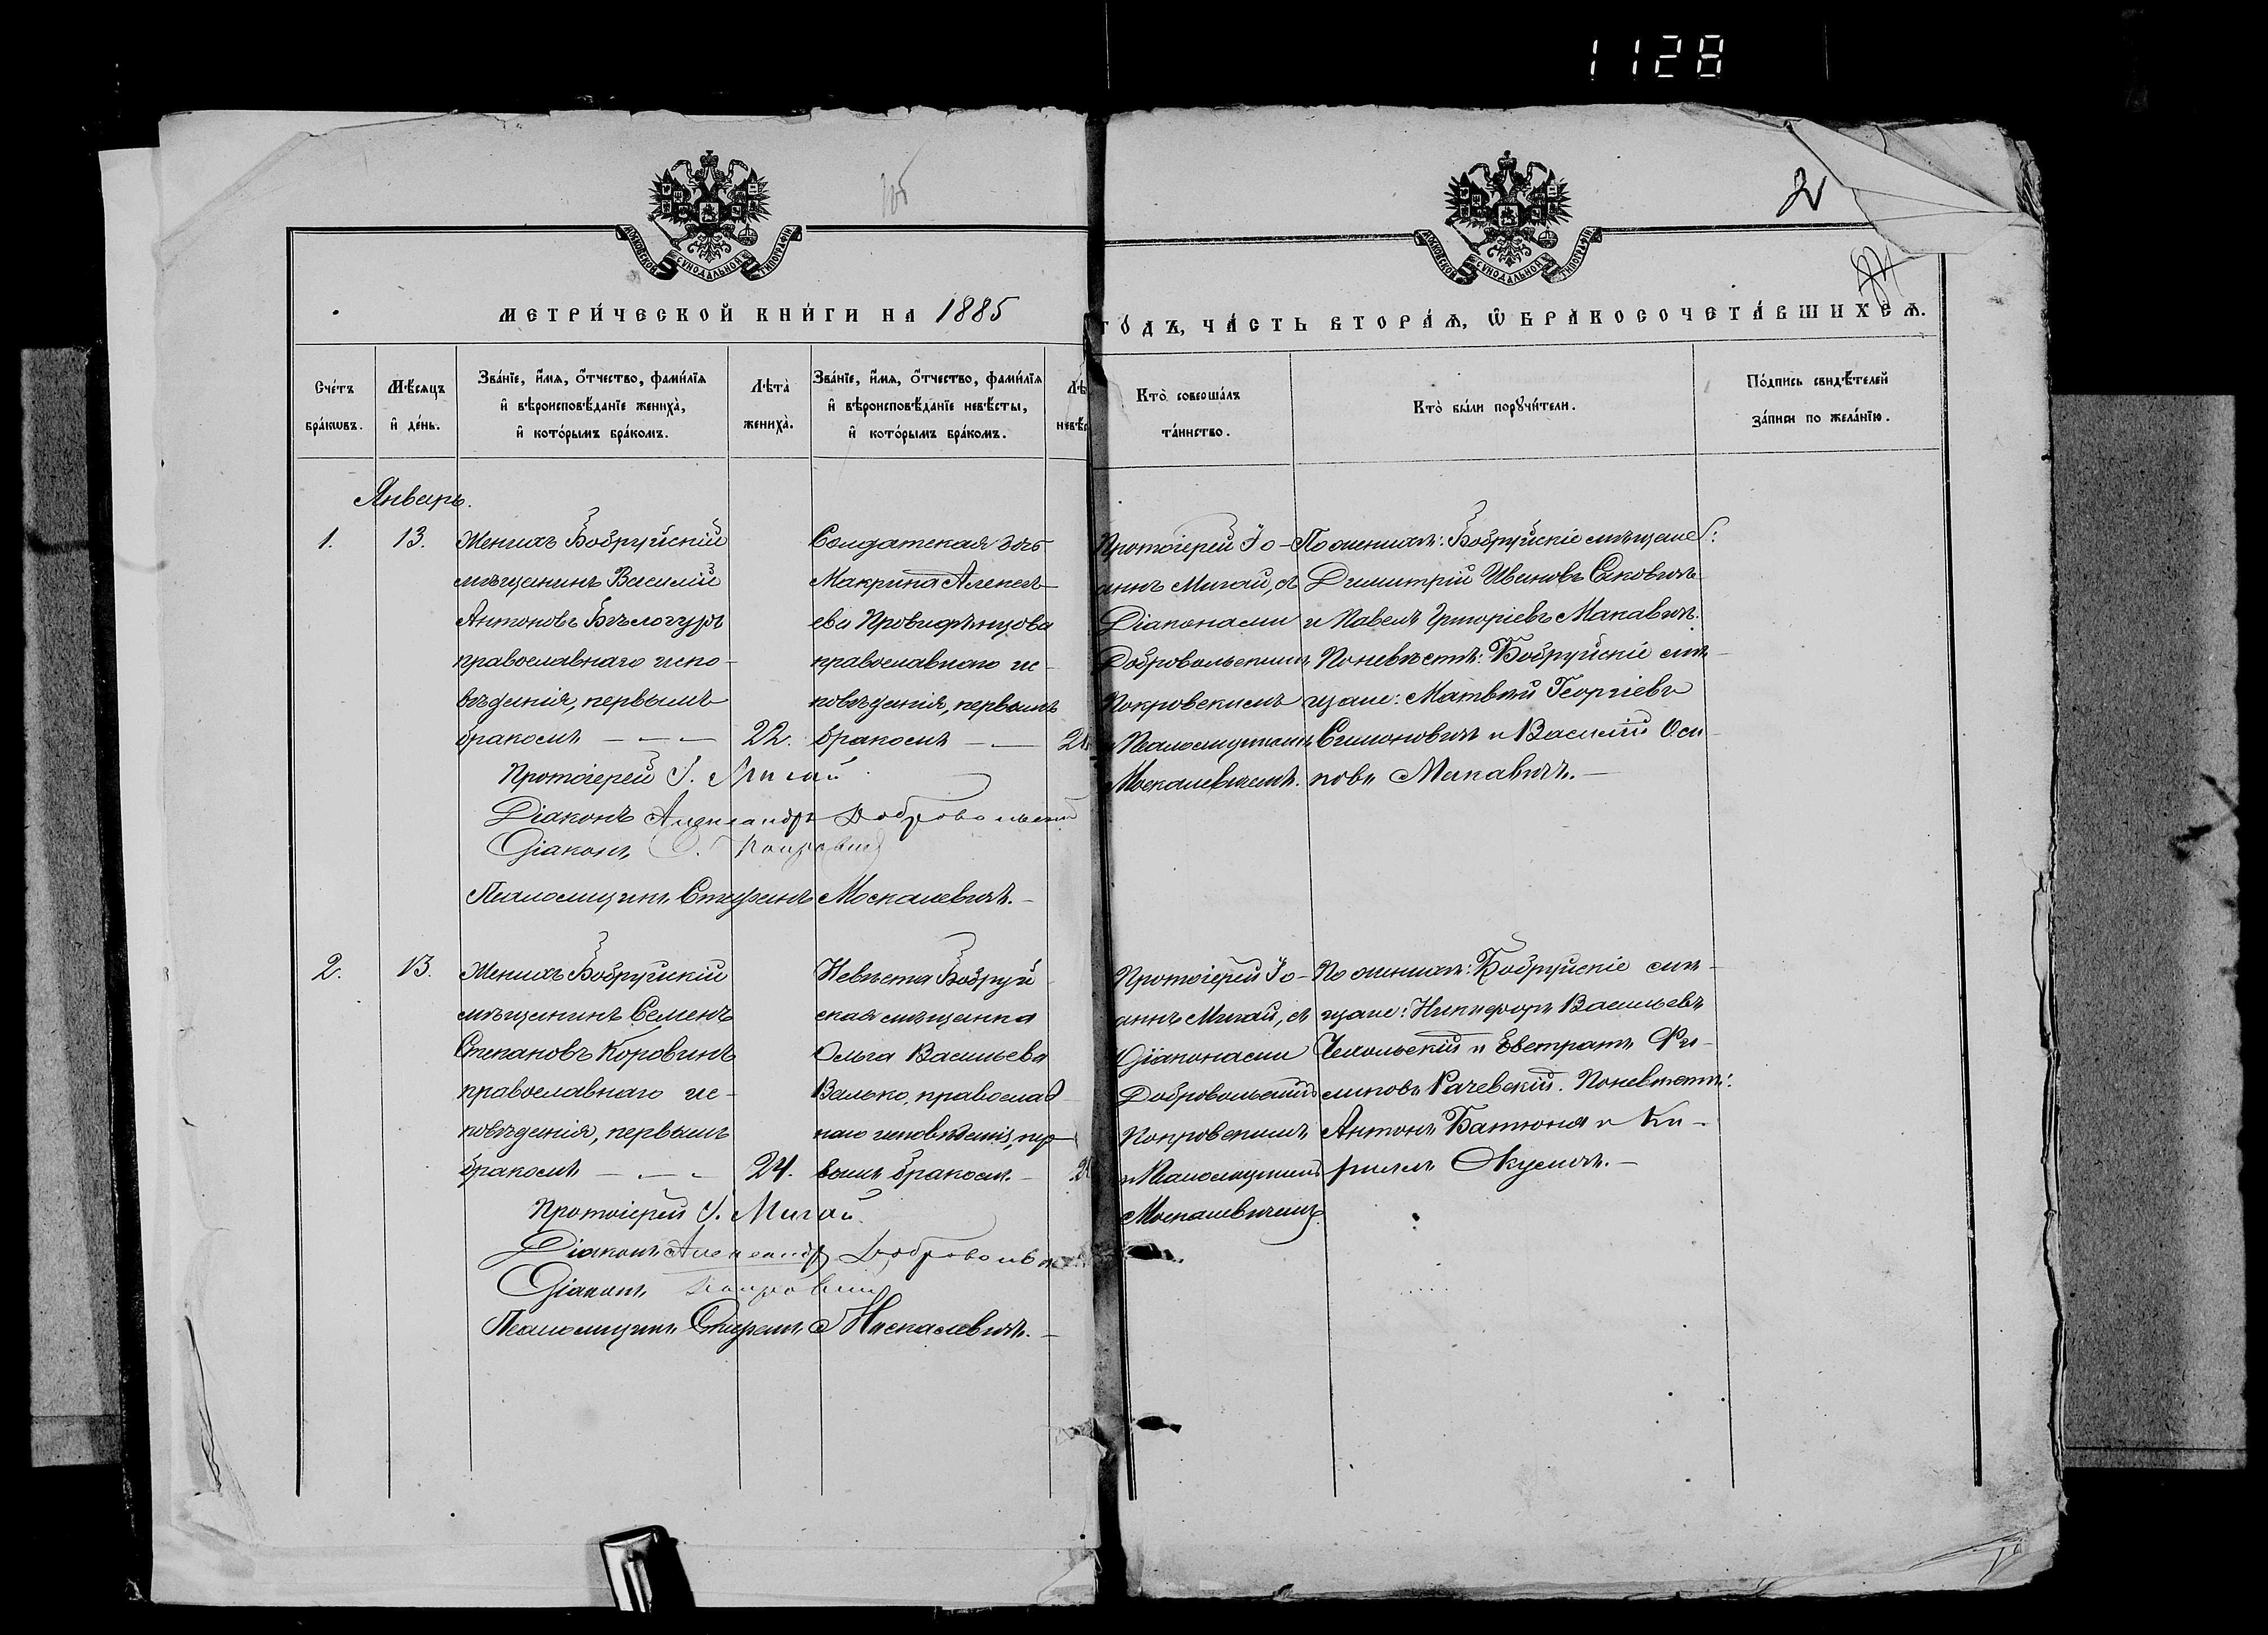 1128
2
МОСКОВСКОЙ СѴНОДАЛЬНОЙ ТИПОГРАФІИ
МОСКОВСКОЙ СѴНОДАЛЬНОЙ ТИПОГРАФІИ
МЕТРИ́ЧЕСКОЙ КНИ́ГИ НА 1885
ГО́ДЪ, ЧА́СТЬ ВТОРА́Я, Ѡ БРАКОСОЧЕТА́ВШИХСѦ.
Сче́тъ бра́кѡвъ.
Мѣ́сяцъ и҆ де́нь.
Зва́нїе, и҆́мя, ѻ҆́тчество, фами́лїя
и҆ вѣроисповѣ́данїе жениха̀,
и҆ кото́рымъ бра́комъ.
Лѣта̀ жениха̀.
Зва́нїе, и҆́мя, ѻ҆́тчество, фами́лїя
и҆ вѣроисповѣ́данїе невѣ́сты,
и҆ кото́рымъ бра́комъ.
Лѣ
невѣс
Кто̀ соверша́лъ
та́инство.
Кто̀ бы́ли порꙋчи́тели.
По́дпись свидѣ́телей
за́писи по жела́нїю.
Январь.
1.
13.
Женихъ Бобруйскій
мѣщанинъ Василій
Антоновъ Бѣлогуръ
православнаго испо-
вѣданія, первымъ
бракомъ — — —
22.
Солдатская дочь
Макрина Алексѣ-
ева
православнаго ис-
повѣданія, первымъ
бракомъ — —
Протоіерей Іо-
аннъ Мигай, съ
Діаконами
Добровольскимъ
Покровскимъ
и Псаломщикомъ
Москалевичемъ.
По женихѣ: Бобруйскіе мѣщане:
Димитрій Ивановъ Саковичъ
и Павелъ Григоріевъ Макавичъ.
По невѣстѣ: Бобруйскіе мѣ-
щане: Матвѣй Георгіевъ
Симоновичъ и Василій Оси-
повъ Макавичъ. —
Протоіерей І. Мигай
Діаконъ Александръ Добровольскій
Діаконъ Покровскій
Псаломщикъ Стефанъ Москалевичъ. —
2.
13.
Женихъ Бобруйскій
мѣщанинъ Семенъ
Степановъ Коровинъ
православнаго ис-
повѣданія, первымъ
бракомъ — — —
24.
Невѣста Бобруй-
ская мѣщанка
Ольга Васильева
Валько, православ-
наго исповѣданія, пер-
вымъ бракомъ. —
Протоіерей Іо-
аннъ Мигай, съ
Діаконами
Добровольскимъ
Покровскимъ
и Псаломщикомъ
Москалевичемъ.
По женихѣ: Бобруйскіе мѣ-
щане: Никифоръ Васильевъ
и Евстратъ Фи-
липовъ Рачевскій. По невѣстѣ:
Антонъ Батюня и Ки-
риллъ Окуличъ. —
Протоіерей І. Мигай.
Діаконъ Александръ Добровольскій
Діаконъ Покровскій
Псаломщикъ Стефанъ Москалевичъ. —